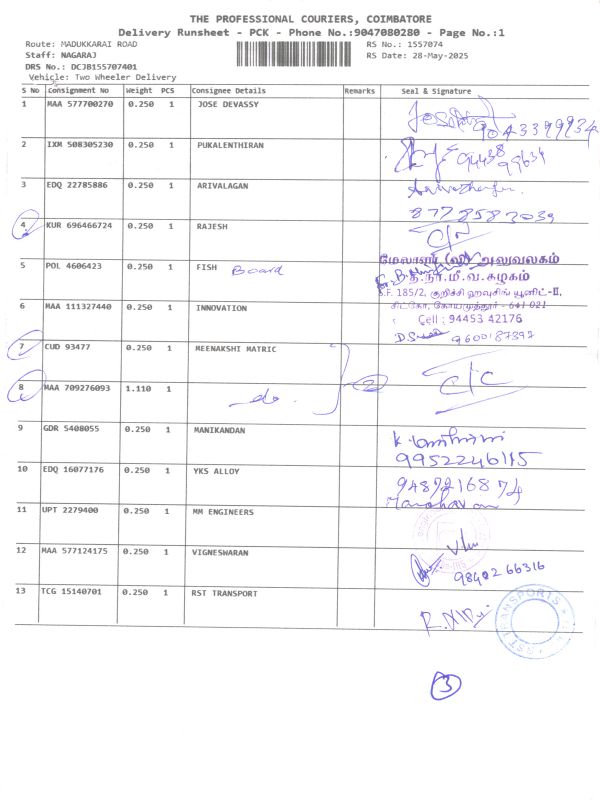 THE PROFESSIONAL COURIERS, COIMBATORE
Delivery Runsheet - PCK - Phone No.:9047080280 - Page No.:1
Route: MADUKKARAI ROAD RS No.: 1557074
Staff: NAGARAJ RS Date: 28-May-2025
DRS No.: DCJB155707401
Vehicle: Two Wheeler Delivery
S No Consignment No Weight PCS Consignee Details Remarks Seal & Signature
1 MAA 577700270 0.250 1 JOSE DEVASSY
9043399934
2 IXM 508305230 0.250 1 PUKALENTHIRAN
94438
99634
3 EDQ 22785886 0.250 1 ARIVALAGAN
8778583039
4 KUR 696466724 0.250 1 RAJESH
மேலாளர் (வ) அலுவலகம்
5 POL 4606423 0.250 1 FISH Board
த.நா.மீ.வ.கழகம்
S.F. 185/2, குறிச்சி ஹவுசிங் யூனிட்-II,
சிட்கோ, கோயமுத்தூர் - 641 021
6 MAA 111327440 0.250 1 INNOVATION
Cell : 94453 42176
9600187397
7 CUD 93477 0.250 1 MEENAKSHI MATRIC
8 MAA 709276093 1.110 1 do 2 C/C
9 GDR 5408055 0.250 1 MANIKANDAN
9952246115
10 EDQ 16077176 0.250 1 YKS ALLOY
9487216874
Manoharan
11 UPT 2279400 0.250 1 MM ENGINEERS
12 MAA 577124175 0.250 1 VIGNESWARAN
98402 66316
13 TCG 15140701 0.250 1 RST TRANSPORT
3